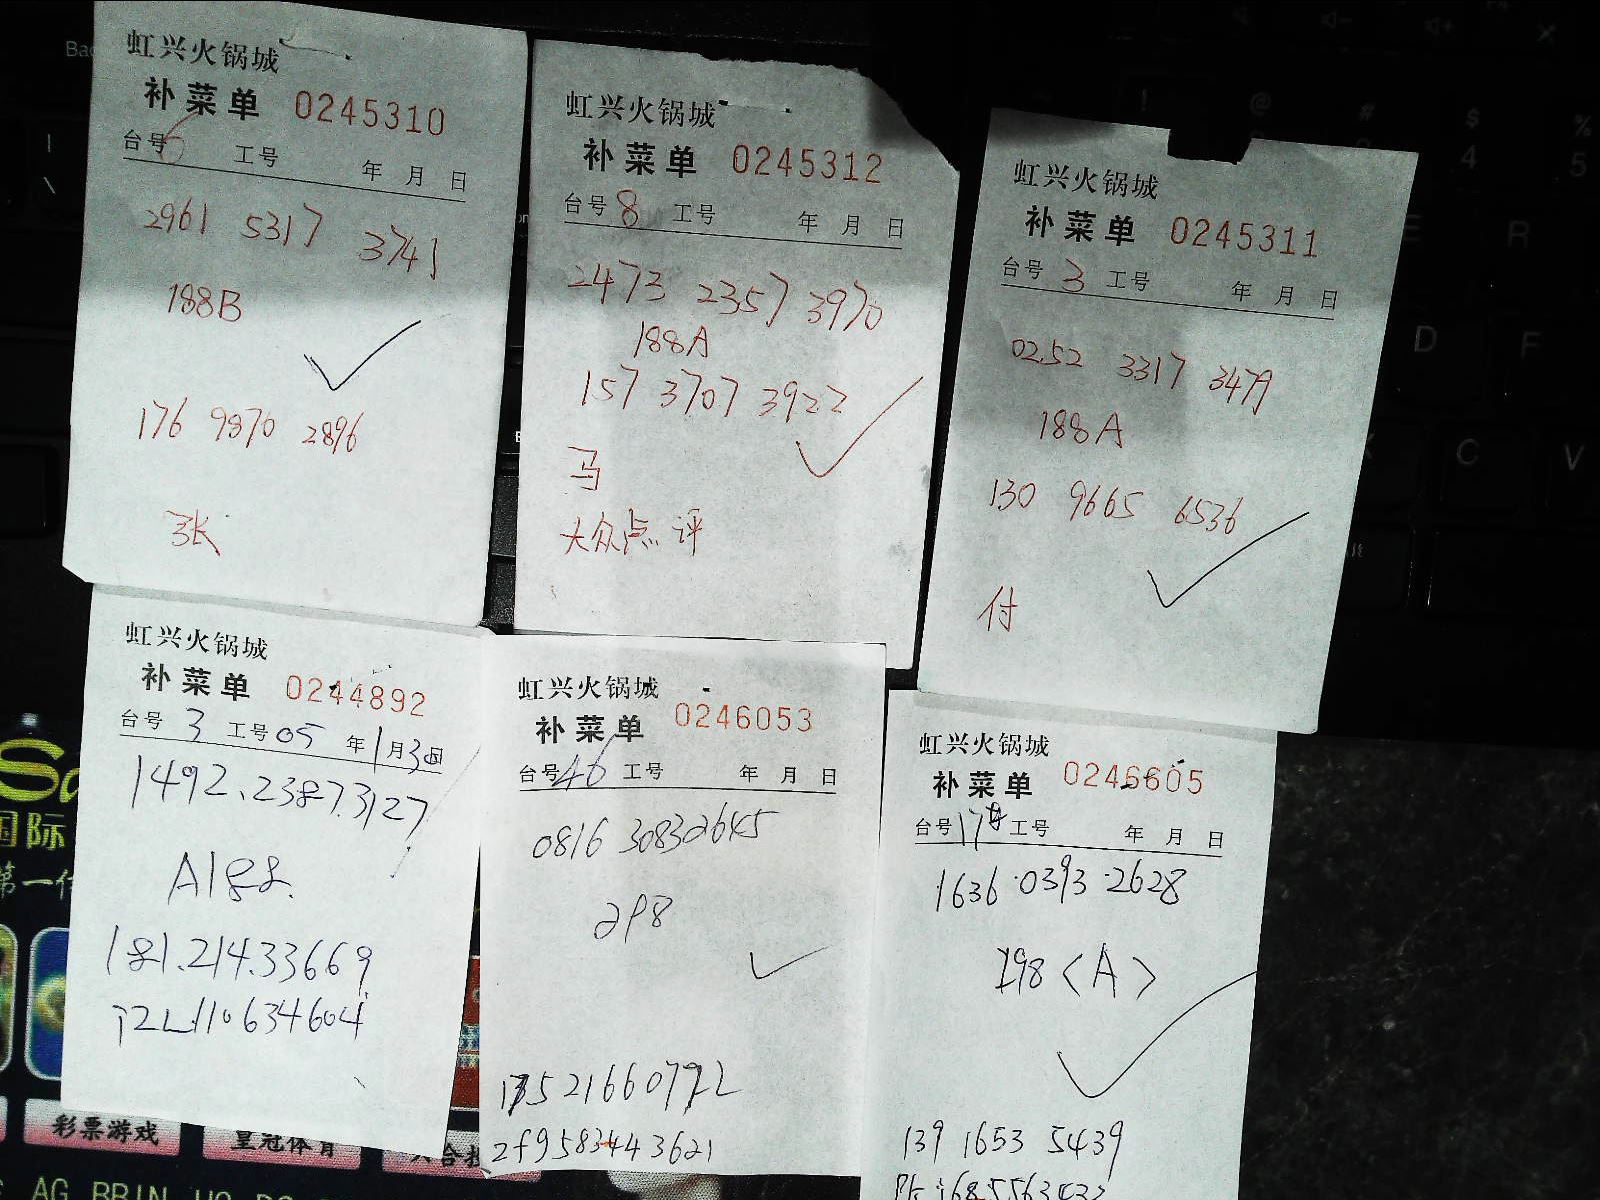 虹兴火锅城
补菜单 0245310
台号 工号 年 月 日
2961 5317 3741
188B
176 9870 2896
张
虹兴火锅城
补菜单 0245312
台号 8 工号 年 月 日
2473 2357 3970
188A
157 3707 3922
马
大众点评
虹兴火锅城
补菜单 0245311
台号 3 工号 年 月 日
0252 3317 3479
188A
130 9665 6536
付
虹兴火锅城
补菜单 0244892
台号 3 工号 05 年 1 月 30 日
1492.2387.3127
A188.
181.214.33669
虹兴火锅城
补菜单 0246053
台号 46 工号 年 月 日
0816 30832645
298
2f9583443621
虹兴火锅城
补菜单 0246605
台号 17 工号 年 月 日
1636·0393·2628
198<A>
139 1653 5439
国际
第一
彩票游戏
皇冠体育
AG BBIN